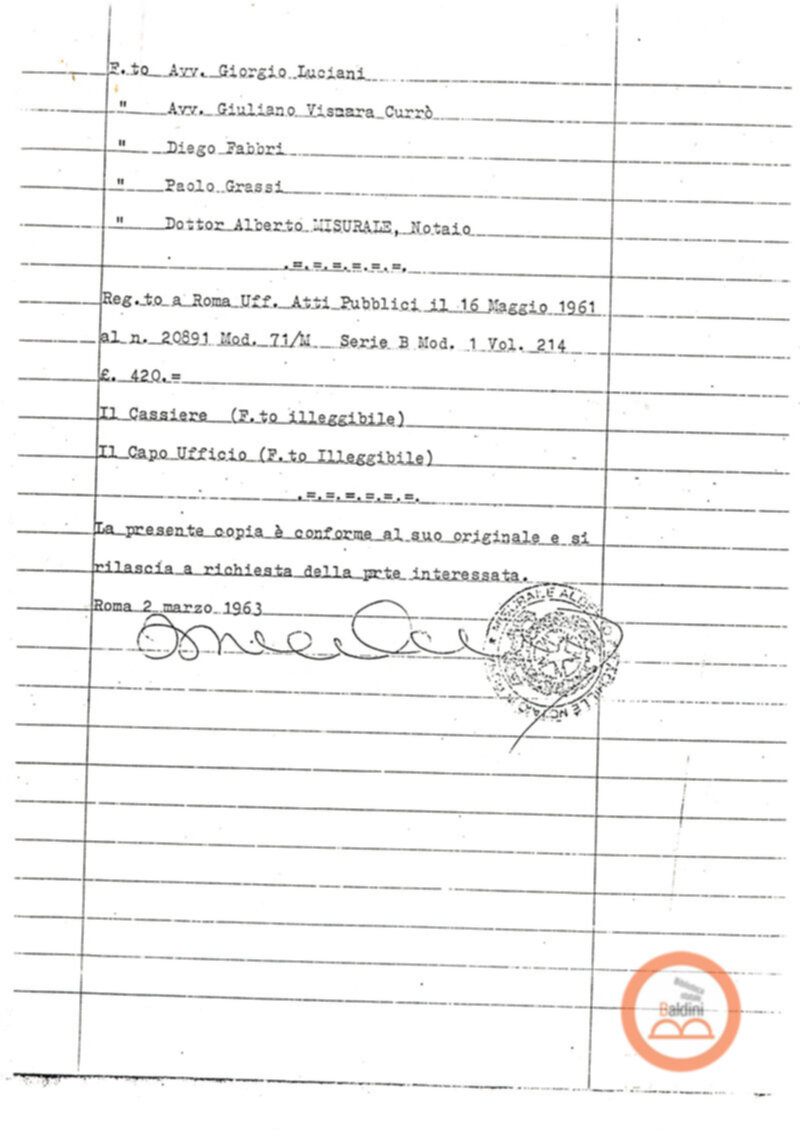 F.to Avv. Giorgio Luciani
" Avv. Giuliano Vismara Currò
" Diego Fabbri
" Paolo Grassi
" Dottor Alberto MISURALE, Notaio
.=.=.=.=.=.=.
Reg.to a Roma Uff. Atti Pubblici il 16 Maggio 1961
al n. 20891 Mod. 71/M Serie B Mod. 1 Vol. 214
£. 420.=
Il Cassiere (F.to illeggibile)
Il Capo Ufficio (F.to Illeggibile)
.=.=.=.=.=.=.
La presente copia è conforme al suo originale e si
rilascia a richiesta della prte interessata.
Roma 2 marzo 1963
MISURALE ALBERTO
NOTAIO
Biblioteca
statale
Baldini